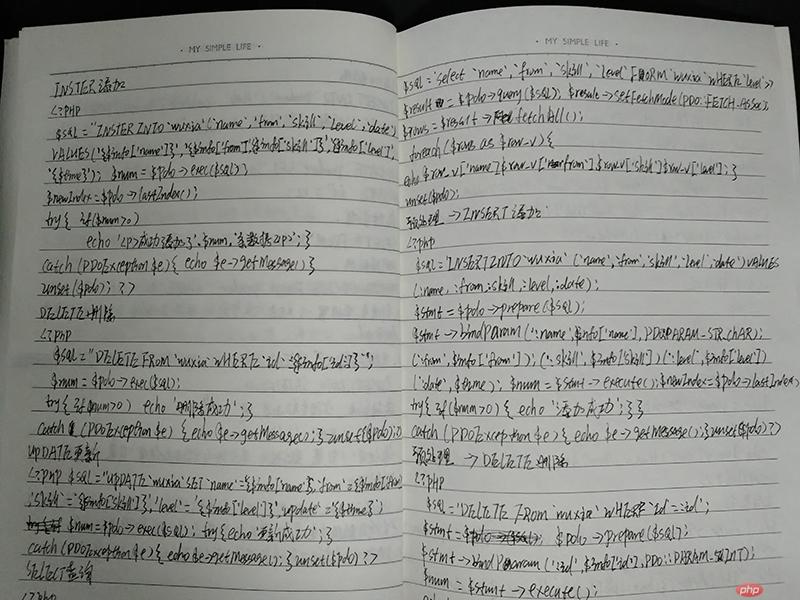 · MY SIMPLE LIFE ·
INSTER添加
<?PHP
$sql="INSTER INTO `wuxia`(`name`,`from`,`skill`,`level`,`date`)
VALUES('{$info['name']}','{$info['from']}','{$info['skill']}','{$info['level']}',
'{$time}'); $num=$pdo->exec($sql);
$newIndex=$pdo->lastIndex();
try{ if($num>0)
echo '<p>成功添加了'.$num.'条数据</p>';}
catch(PDOException $e){ echo $e->getMessage();}
unset($pdo); ?>
DELETE删除
<?php
$sql="DELETE FROM `wuxia` WHERE `id`='{$info['id']}'";
$num=$pdo->exec($sql);
try{ if($num>0) echo '删除成功';}
catch (PDOException $e) {echo $e->getMessage();} unset($pdo);
UPDATE更新
<?PHP $sql="UPDATE `wuxia` SET `name`='{$info['name']}',`from`='{$info['from']
`skill`='{$info['skill']}',`level`='{$info['level']}',`update`='{$time}');
$num=$pdo->exec($sql); try{echo '更新成功';}
catch(PDOException $e){echo $e->getMessage();} unset($pdo) ?>
SELECT查询
<?PHP
· MY SIMPLE LIFE ·
$sql='select `name`,`from`,`skill`,`level` FROM `wuxia` WHERE `level`>
$result=$pdo->query($sql); $result->setFetchMode(PDO::FETCH_ASSOC);
$rows=$result->fetchAll();
foreach($rows as $row_v){
echo $row_v['name'].$row_v['from'].$row_v['skill'].$row_v['level'];}
unset($pdo);
预处理->INSERT添加
<?php
$sql='INSERT INTO `wuxia` (`name`,`from`,`skill`,`level`,`date`) VALUES
(:name,:from,:skill,:level,:date);
$stmt=$pdo->prepare($sql);
$stmt->bindParam(':name',$info['name'],PDO::PARAM_STR_CHAR);
(':from',$info['from']);(':skill',$info['skill'])(':level',$info['level'])
(':date',$time); $num=$stmt->execute();$newIndex=$pdo->lastIndex
try{ if($num>0){ echo '添加成功';}}
catch(PDOException $e){ echo $e->getMessage();} unset($pdo)?>
预处理->DELETE删除
<?PHP
$sql='DELETE FROM `wuxia` WHERE `id`=:id';
$stmt=$pdo->prepare($sql);
$stmt->bindParam(':id',$info['id'],PDO::PARAM_INT);
$num=$stmt->execute();
php